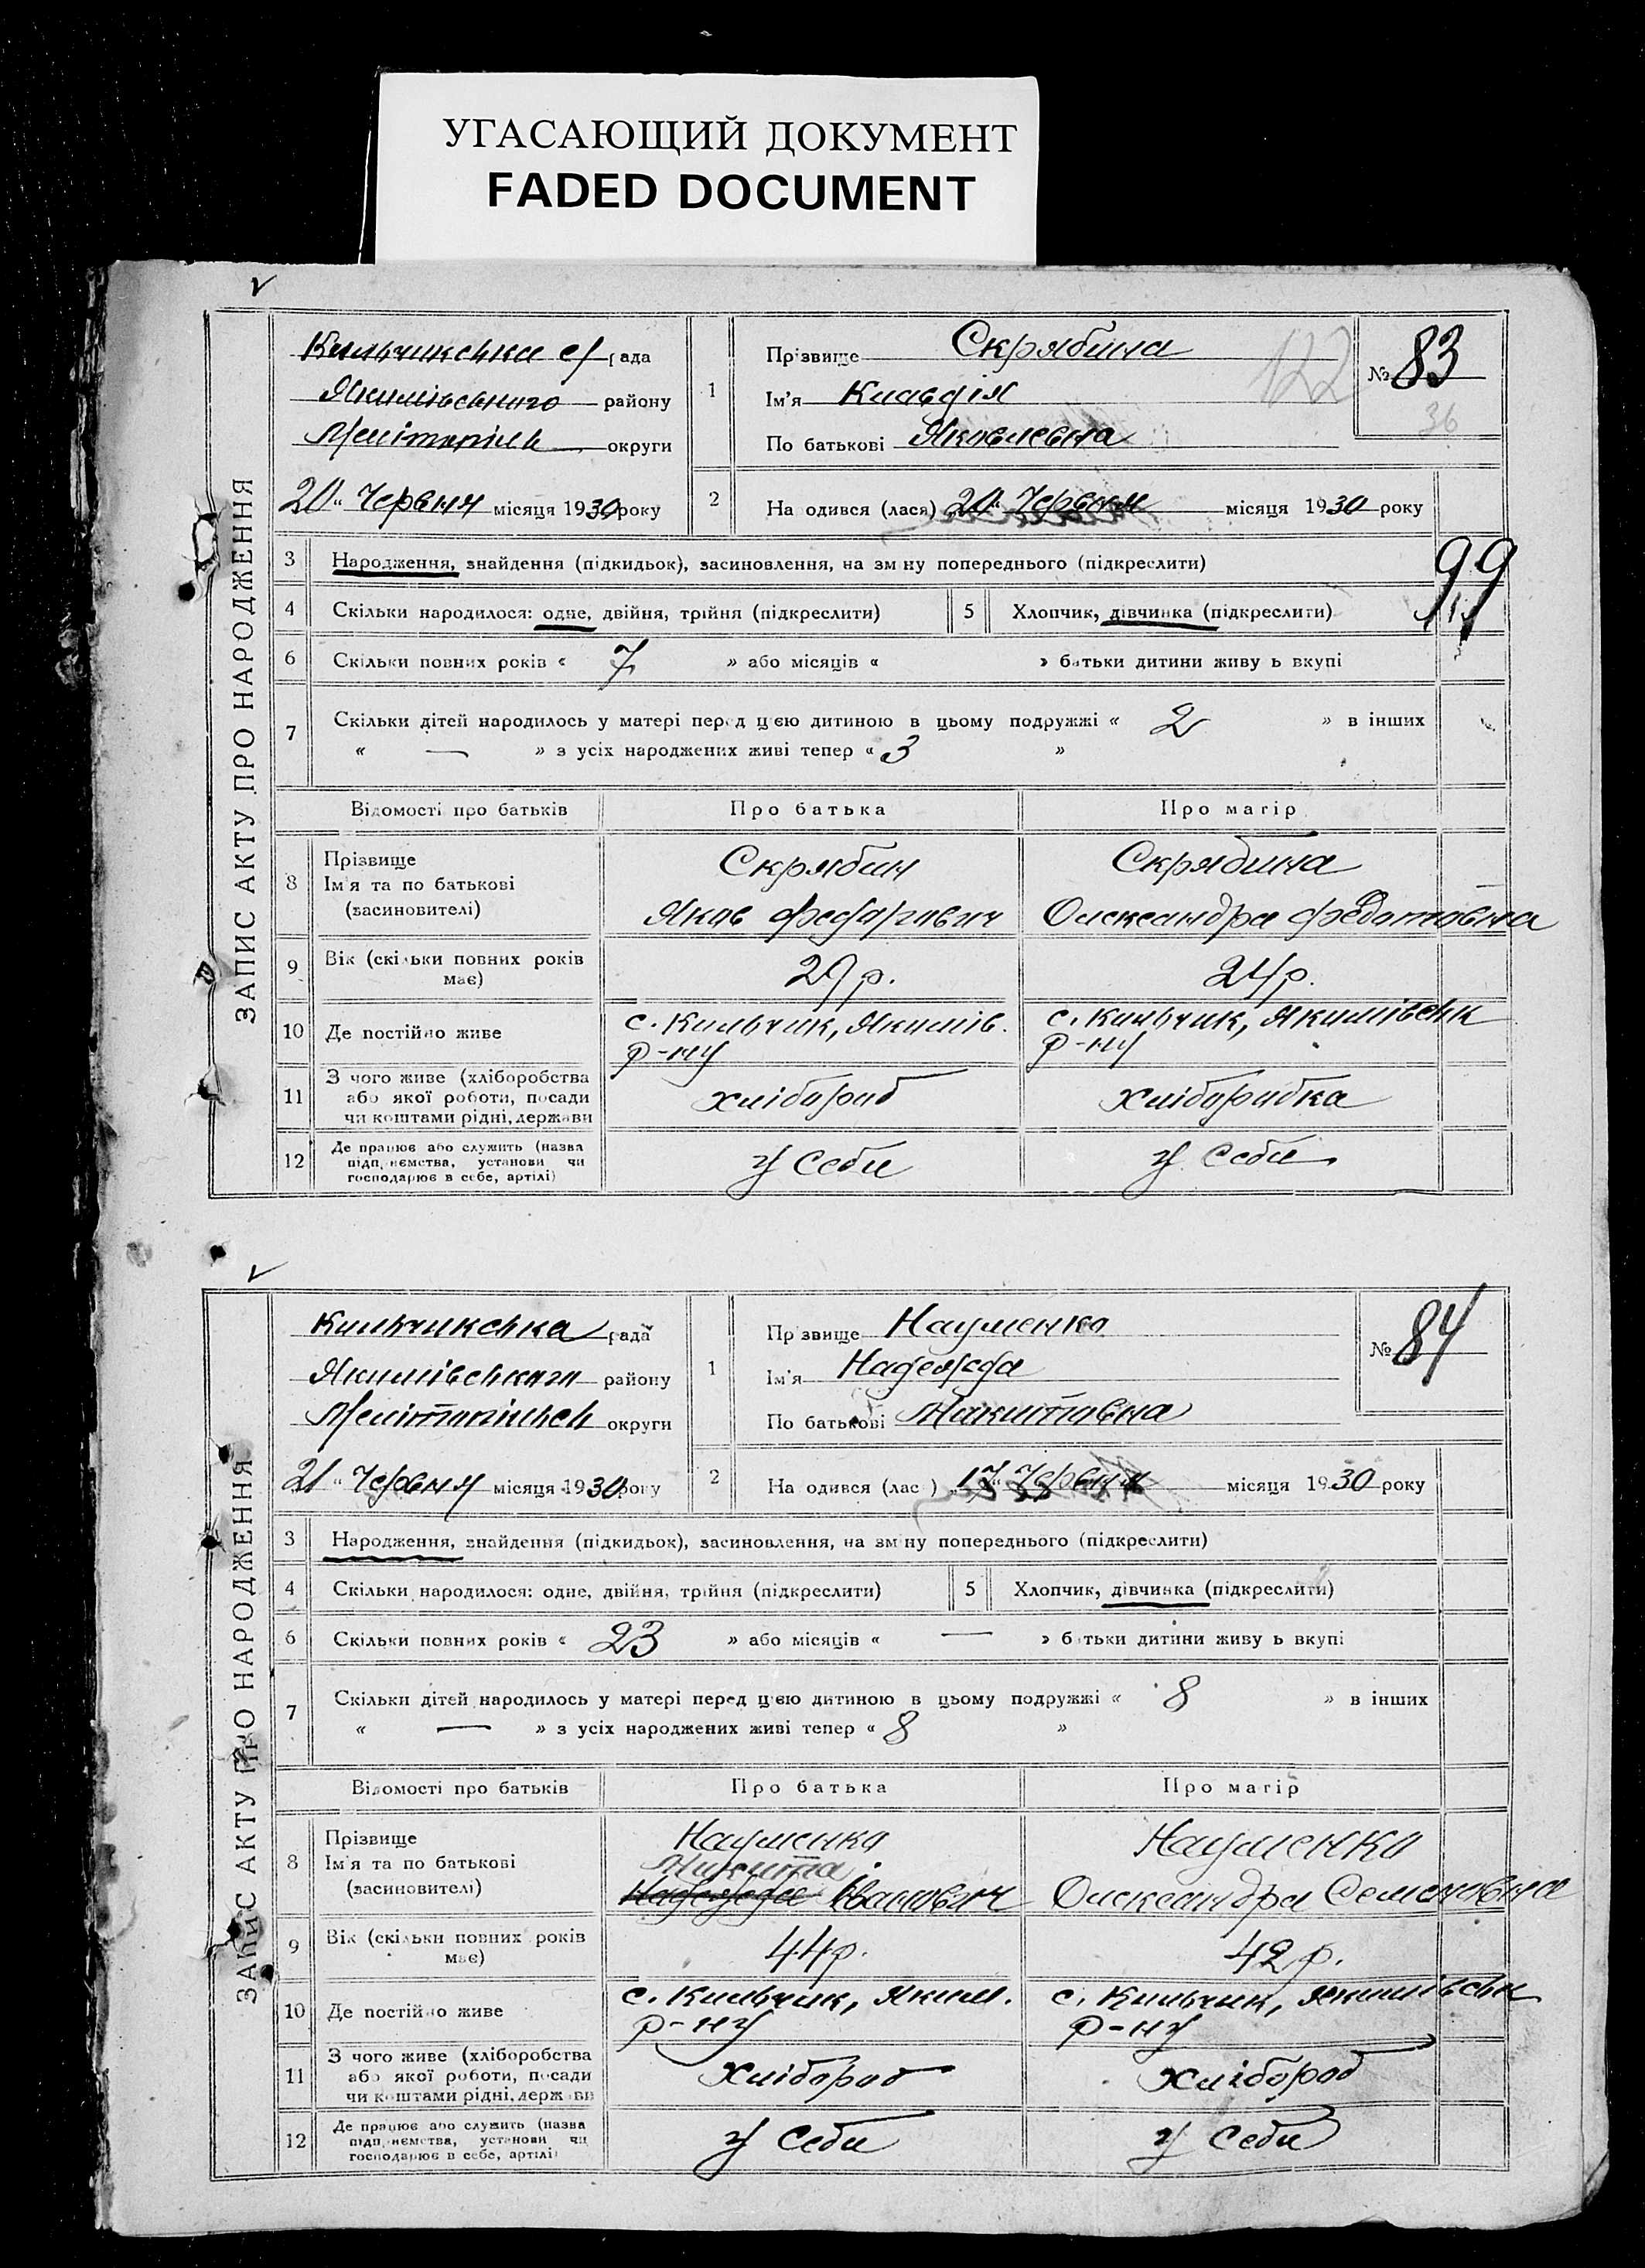 УГАСАЮЩИЙ ДОКУМЕНТ
FADED DOCUMENT
ЗАПИС АКТУ ПРО НАРОДЖЕННЯ
Кильчикська с/рада
Якимівського району
Мелітопіль округи
20 " Червня місяця 1930 року
1
Прізвище Скрябина
Ім'я Клавдія
По батькові Яковлевна
122
№ 83
36
2
На одився (лася) „20" Червня місяця 1930 року
3 Народження, знайдення (підкидьок), засиновлення, на зм ну попереднього (підкреслити)
99
4 Скільки народилося: одне, двійня, трійня (підкреслити) 5 Хлопчик, дівчинка (підкреслити)
6 Скільки повних років « 7 » або місяців « » батьки дитини живу ь вкупі
7 Скільки дітей народилось у матері перед цією дитиною в цьому подружжі « 2 » в інших
« — » з усіх народжених живі тепер « 3 »
Відомості про батьків Про батька Про матір
8 Прізвище Скрябин Скрябина
Ім'я та по батькові
(засиновителі) Яков Федорович Олександра Федотовна
9 Вік (скільки повних років має) 29 р. 24 р.
10 Де постійно живе с. Кильчик, Якимів. р-ну с. Кильчик, Якимівськ р-ну
11 З чого живе (хліборобства
або якої роботи, посади хлібороб хлоборобка
чи коштами рідні, держави
12 Де працює або служить (назва
підп иємства, установи чи у себи у себи
господарює в себе, артілі)
ЗАПИС АКТУ ПРО НАРОДЖЕННЯ
Кильчикська рада
Якимівського району
Мелітопільськ округи
21 " Червня місяця 1930 року
1
Пр звище Науменко
Ім'я Надежда
По батькові Микитовна
№ 84
2
На одився (лас ) „17" Червня місяця 1930 року
3 Народження, знайдення (підкидьок), засиновлення, на зм ну попереднього (підкреслити)
4 Скільки народилося: одне, двійня, трійня (підкреслити) 5 Хлопчик, дівчинка (підкреслити)
6 Скільки повних років « 23 » або місяців « — » б тьки дитини живу ь вкупі
7 Скільки дітей народилось у матері перед цією дитиною в цьому подружжі « 8 » в інших
« — » з усіх народжених живі тепер « 8 »
Відомості про батьків Про батька Про матір
8 Прізвище Науменко Науменко
Ім'я та по батькові Микита
(засиновителі) Надежда Іванович Олександра Семеновна
9 Вік (скільки повних років має) 44 р. 42 р.
10 Де постійно живе с. Кильчик, Яким. р-ну с. Кильчик, Якимівськ р-ну
11 З чого живе (хліборобства
або якої роботи, посади хлібороб хлібороб
чи коштами рідні, держ ви
12 Де працює або служить (назва
підп иємства, установи чи у себи у себи
господарює в себе, артілі)